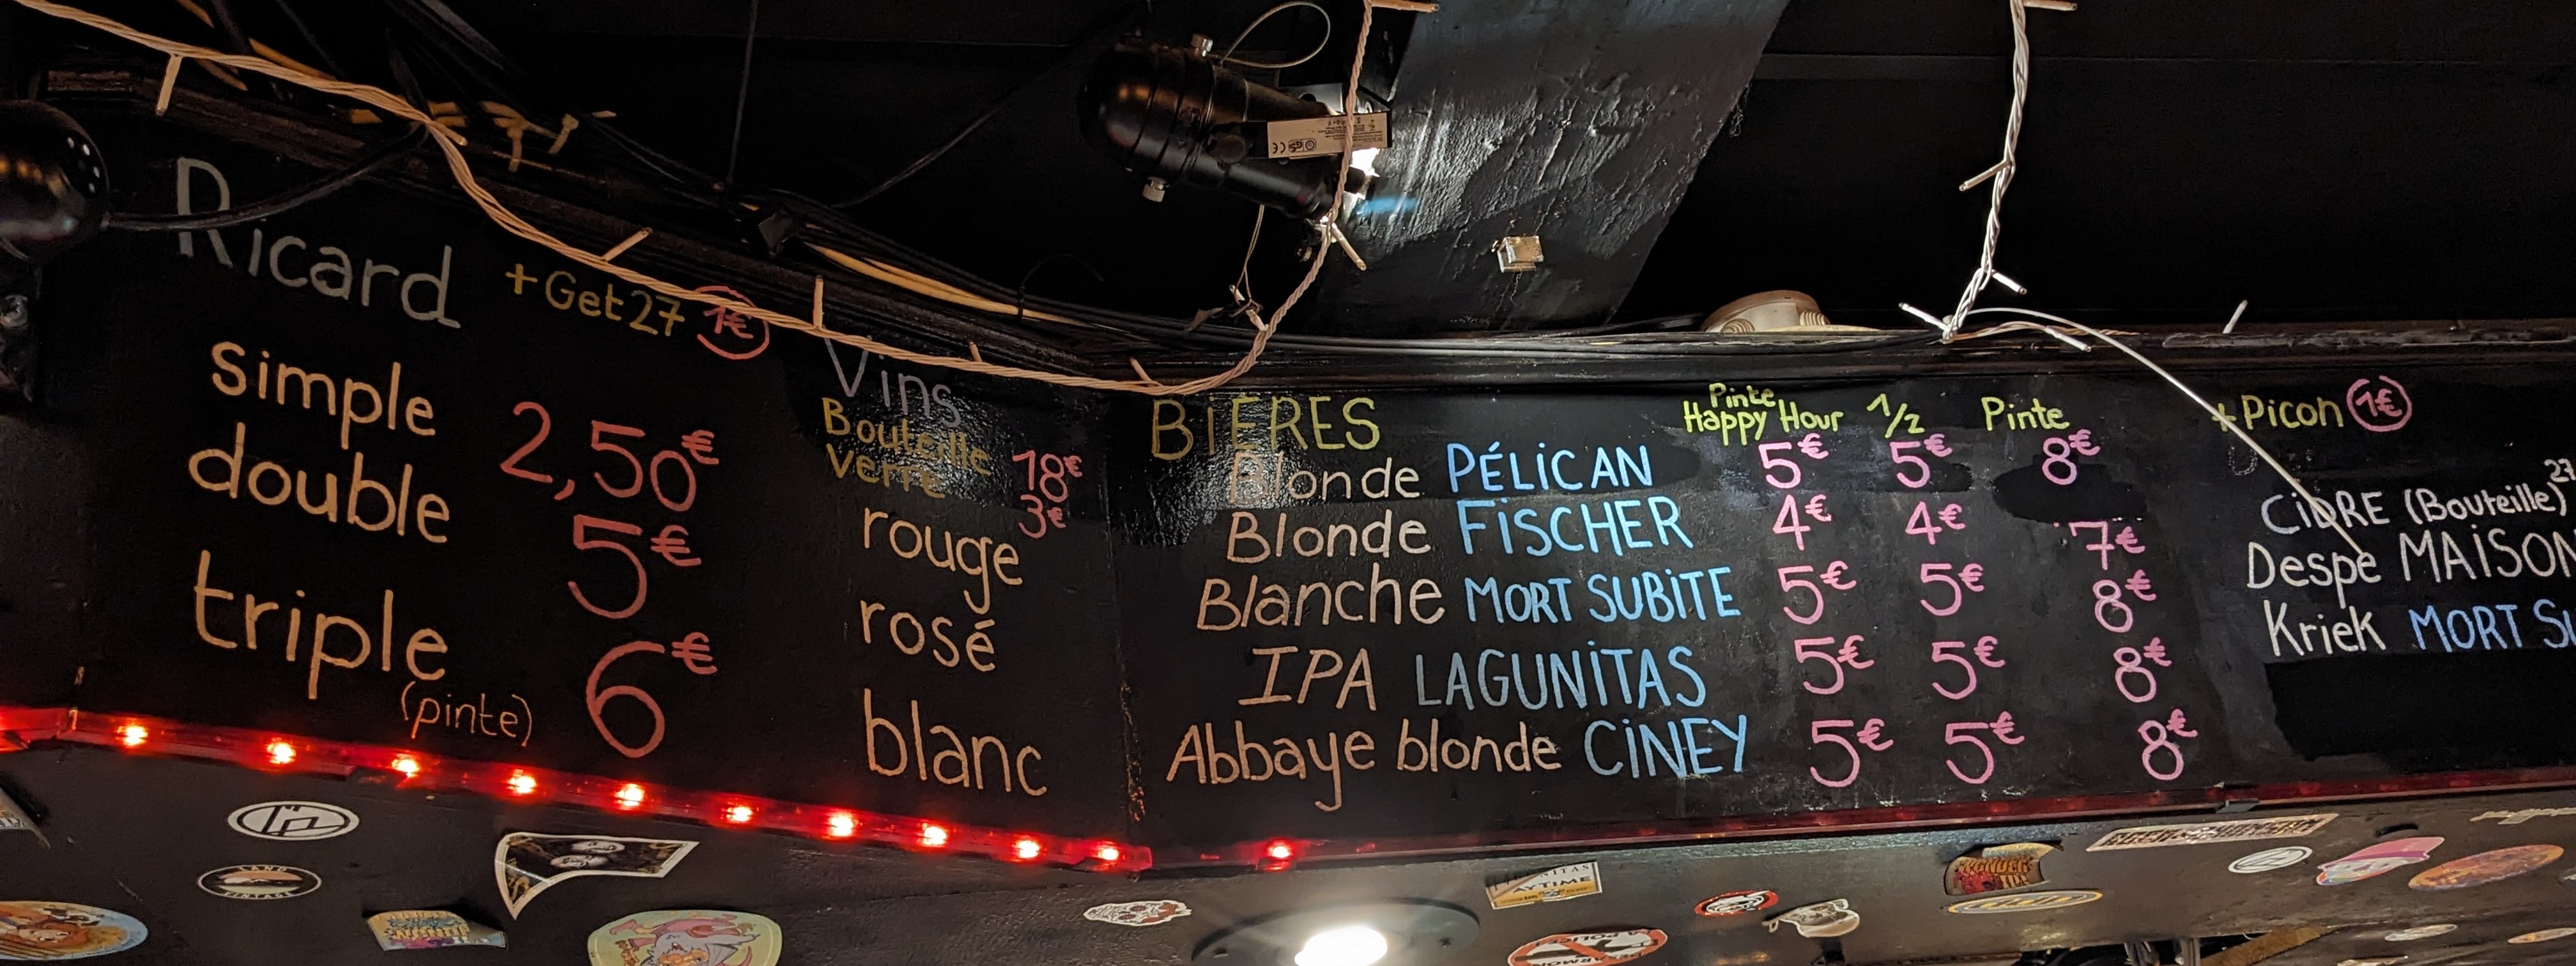 Ricard
+Get27 1€
simple 2,50€
double 5€
triple 6€
(pinte)
Vins
Bouteille 18€
verre 3€
rouge
rosé
blanc
BIÈRES Pinte Happy Hour 1/2 Pinte +Picon 1€
Blonde PÉLICAN 5€ 5€ 8€
Blonde FISCHER 4€ 4€ 7€
Blanche MORT SUBITE 5€ 5€ 8€
IPA LAGUNITAS 5€ 5€ 8€
Abbaye blonde CINEY 5€ 5€ 8€
CIDRE (Bouteille) 27
Despe MAISON
Kriek MORT SU